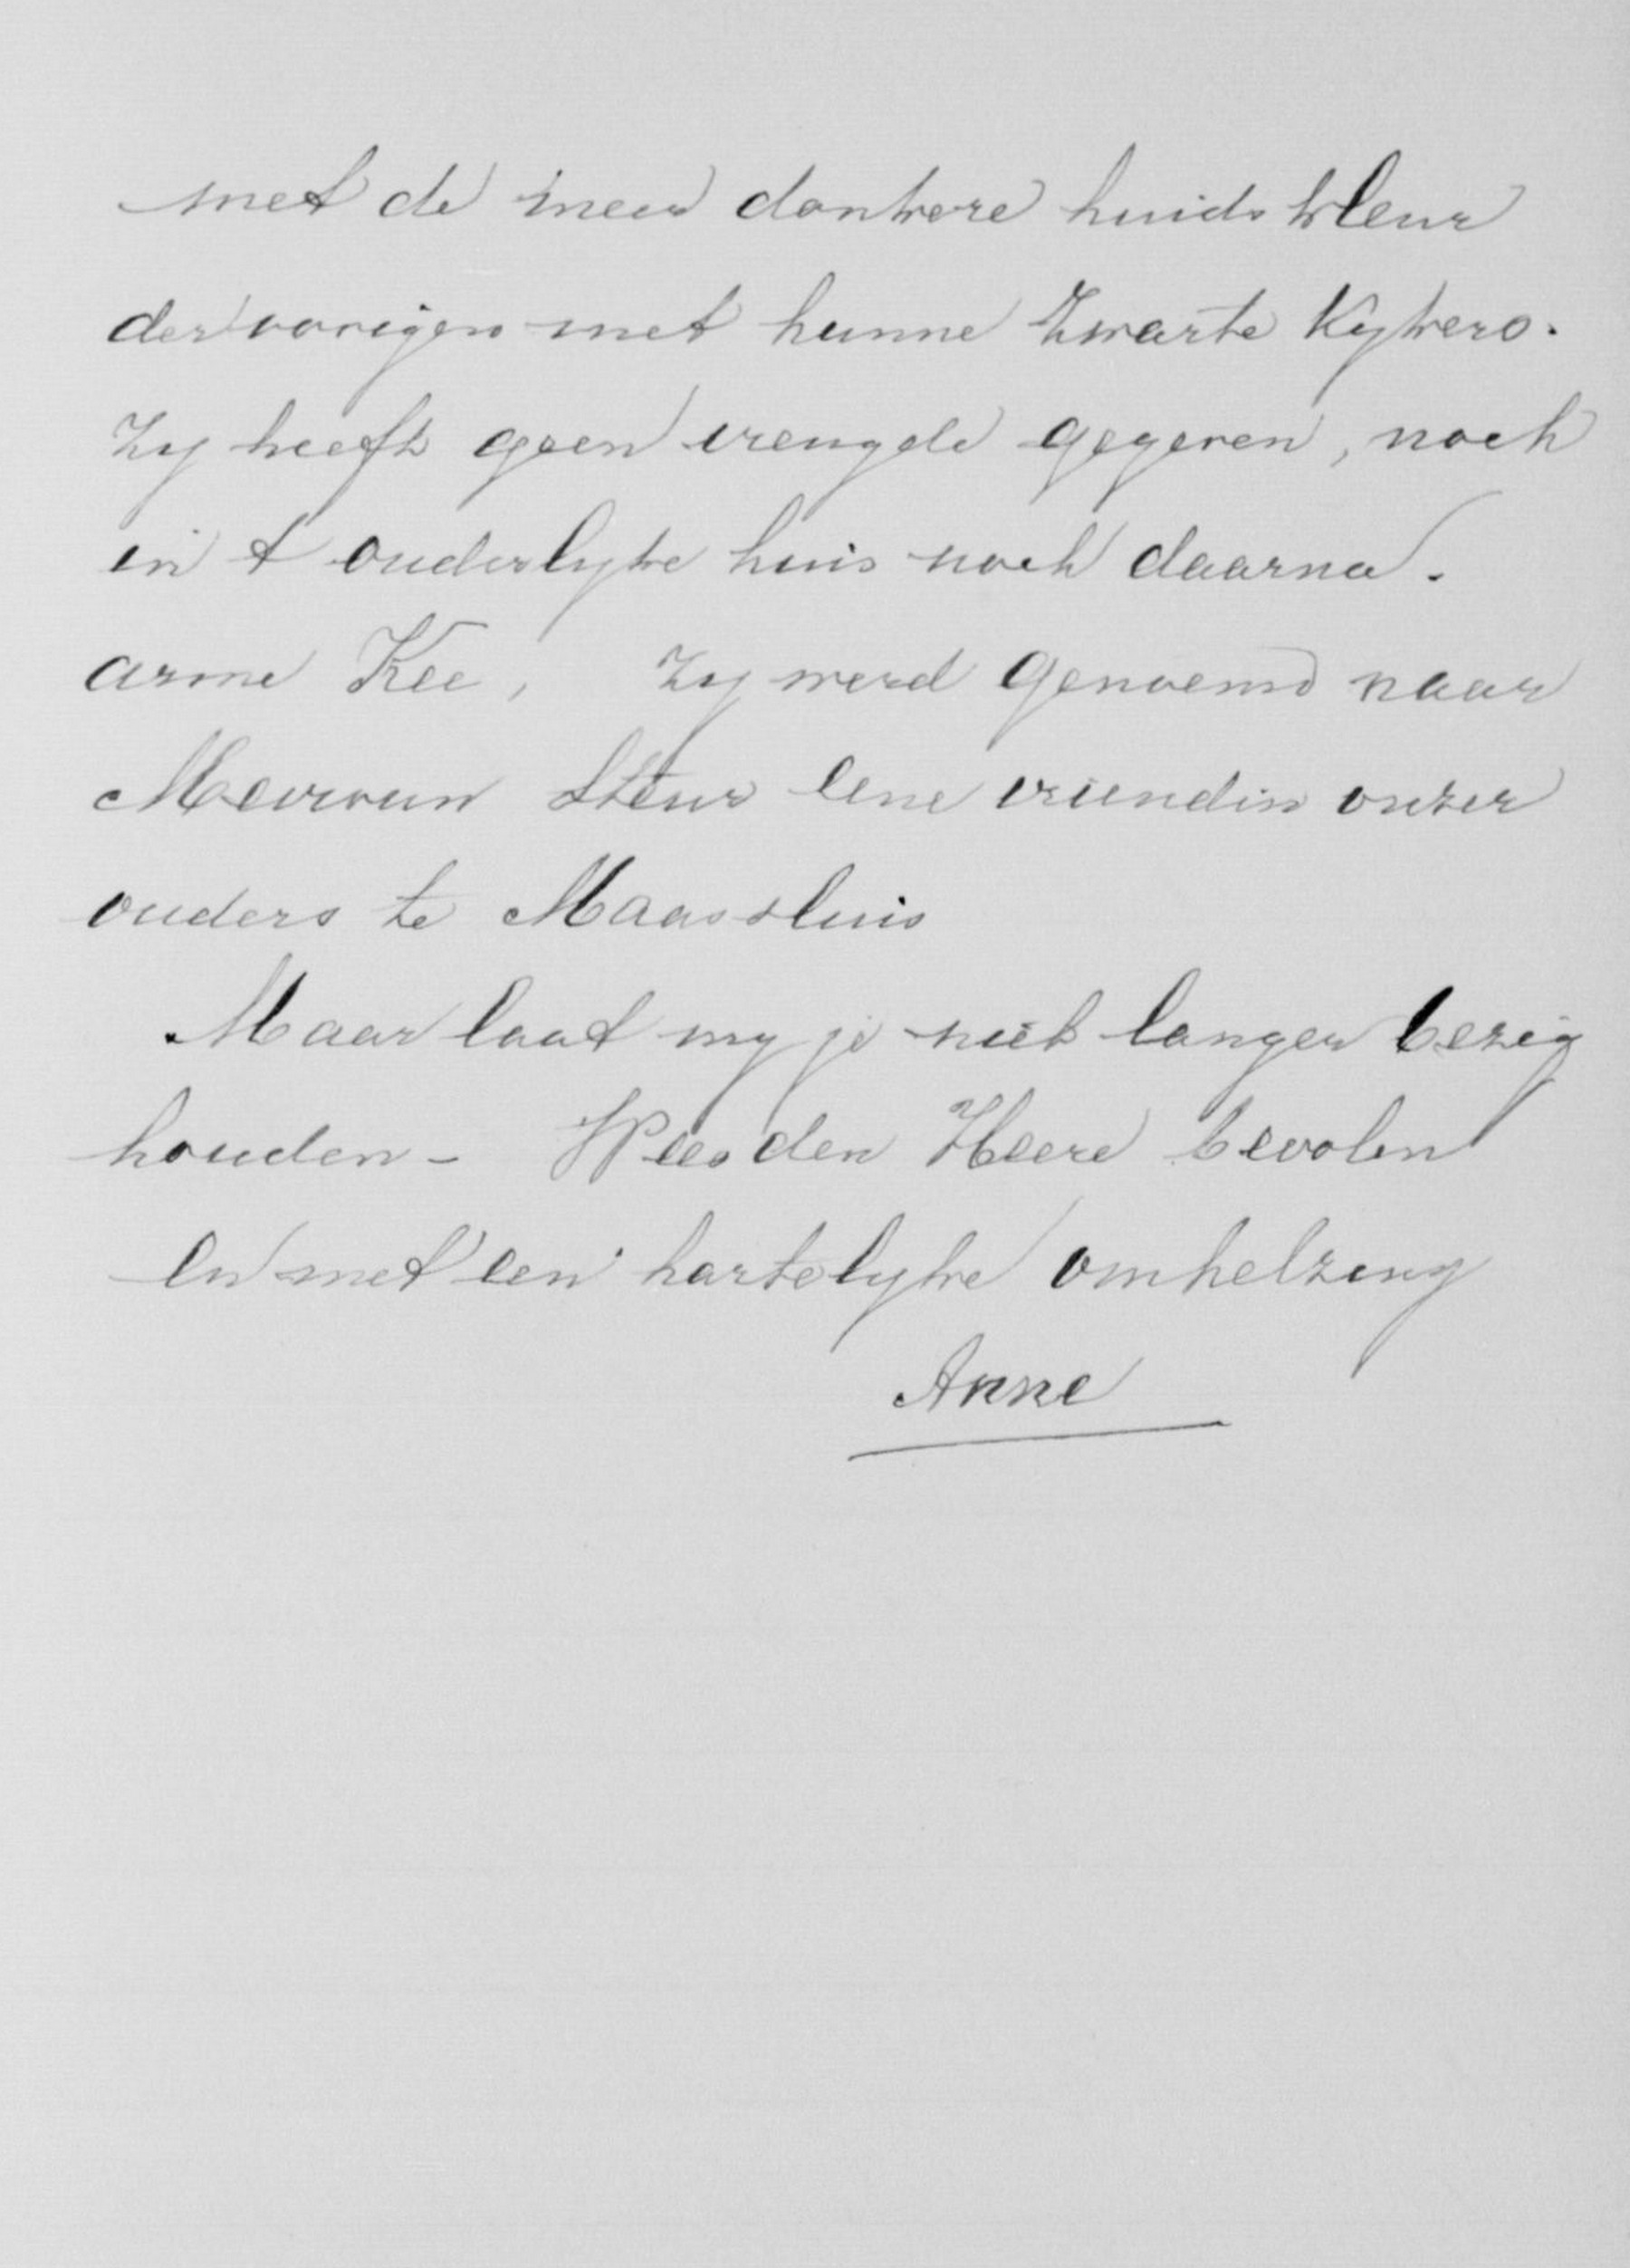 met de meer donkere huidskleur
der vorigen met hunne zwarte kykers.
Zy heeft geen vreugde gegeven, noch
in t ouderlyke huis noch daarna.
arme Kee, Zy werd genoemd naar
Mevrouw Steur eene vriendin onzer
ouders te Maassluis
Maar laat my je niet langer bezig
houden - Wees den Heere bevolen
en met een hartelyke omhelzing
Anne